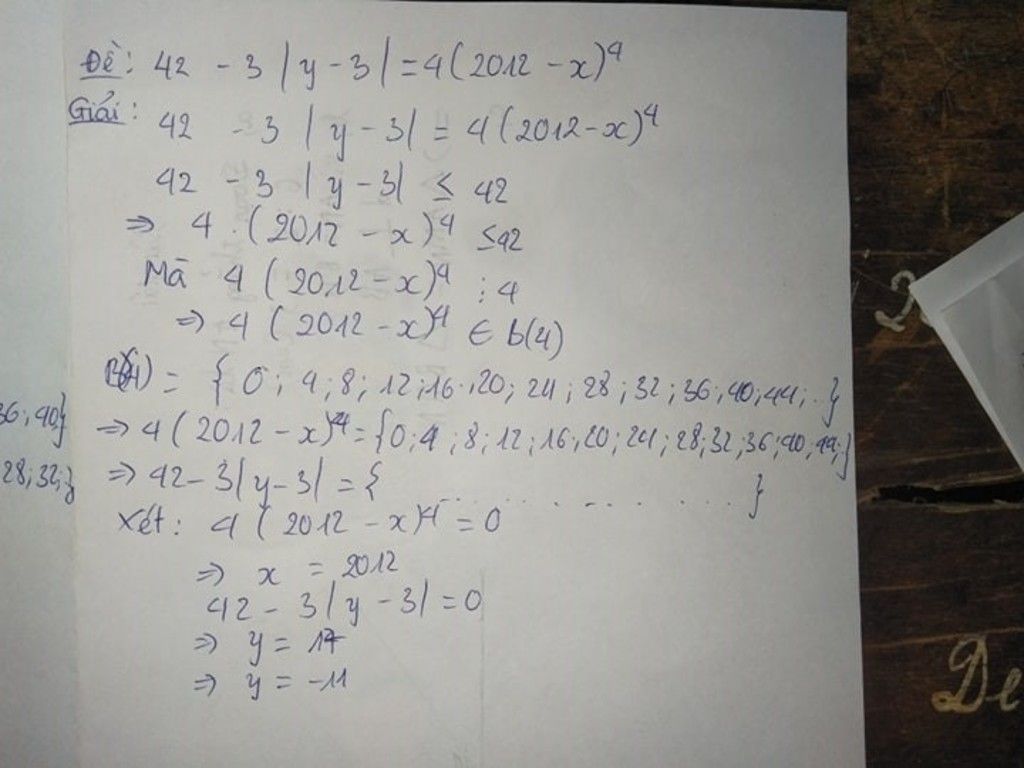 Đề: 42 - 3 |y - 3| = 4(2012 - x)^4
Giải: 42 - 3 |y - 3| = 4(2012 - x)^4
42 - 3 |y - 3| ≤ 42
⇒ 4 . (2012 - x)^4 ≤ 42
Mà 4 (2012 - x)^4 ⋮ 4
⇒ 4 (2012 - x)^4 ∈ b(4)
B(4) = {0; 4; 8; 12; 16; 20; 24; 28; 32; 36; 40; 44; ..}
⇒ 4 (2012 - x)^4 = {0; 4; 8; 12; 16; 20; 24; 28; 32; 36; 40; 44;}
⇒ 42 - 3|y - 3| = { ............ }
Xét: 4 (2012 - x)^4 = 0
⇒ x = 2012
42 - 3|y - 3| = 0
⇒ y = 17
⇒ y = -11
36; 40}
28; 32;}
De